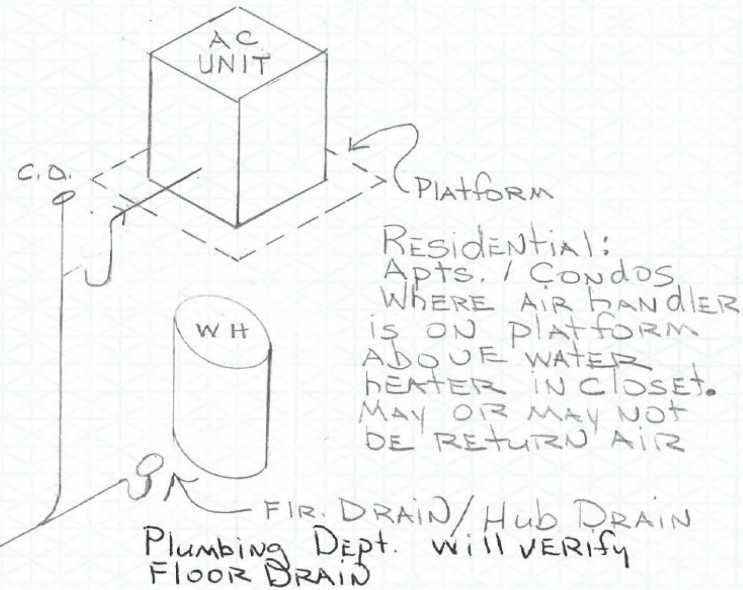 AC
UNIT
C.O.
PLATFORM
RESIDENTIAL:
APTS. / CONDOS
WHERE AIR HANDLER
is ON PLATFORM
ABOVE WATER
HEATER IN CLOSET.
MAY OR MAY NOT
BE RETURN AIR
WH
FLR. DRAIN/Hub DRAIN
Plumbing Dept. will VERIFY
FLOOR DRAIN